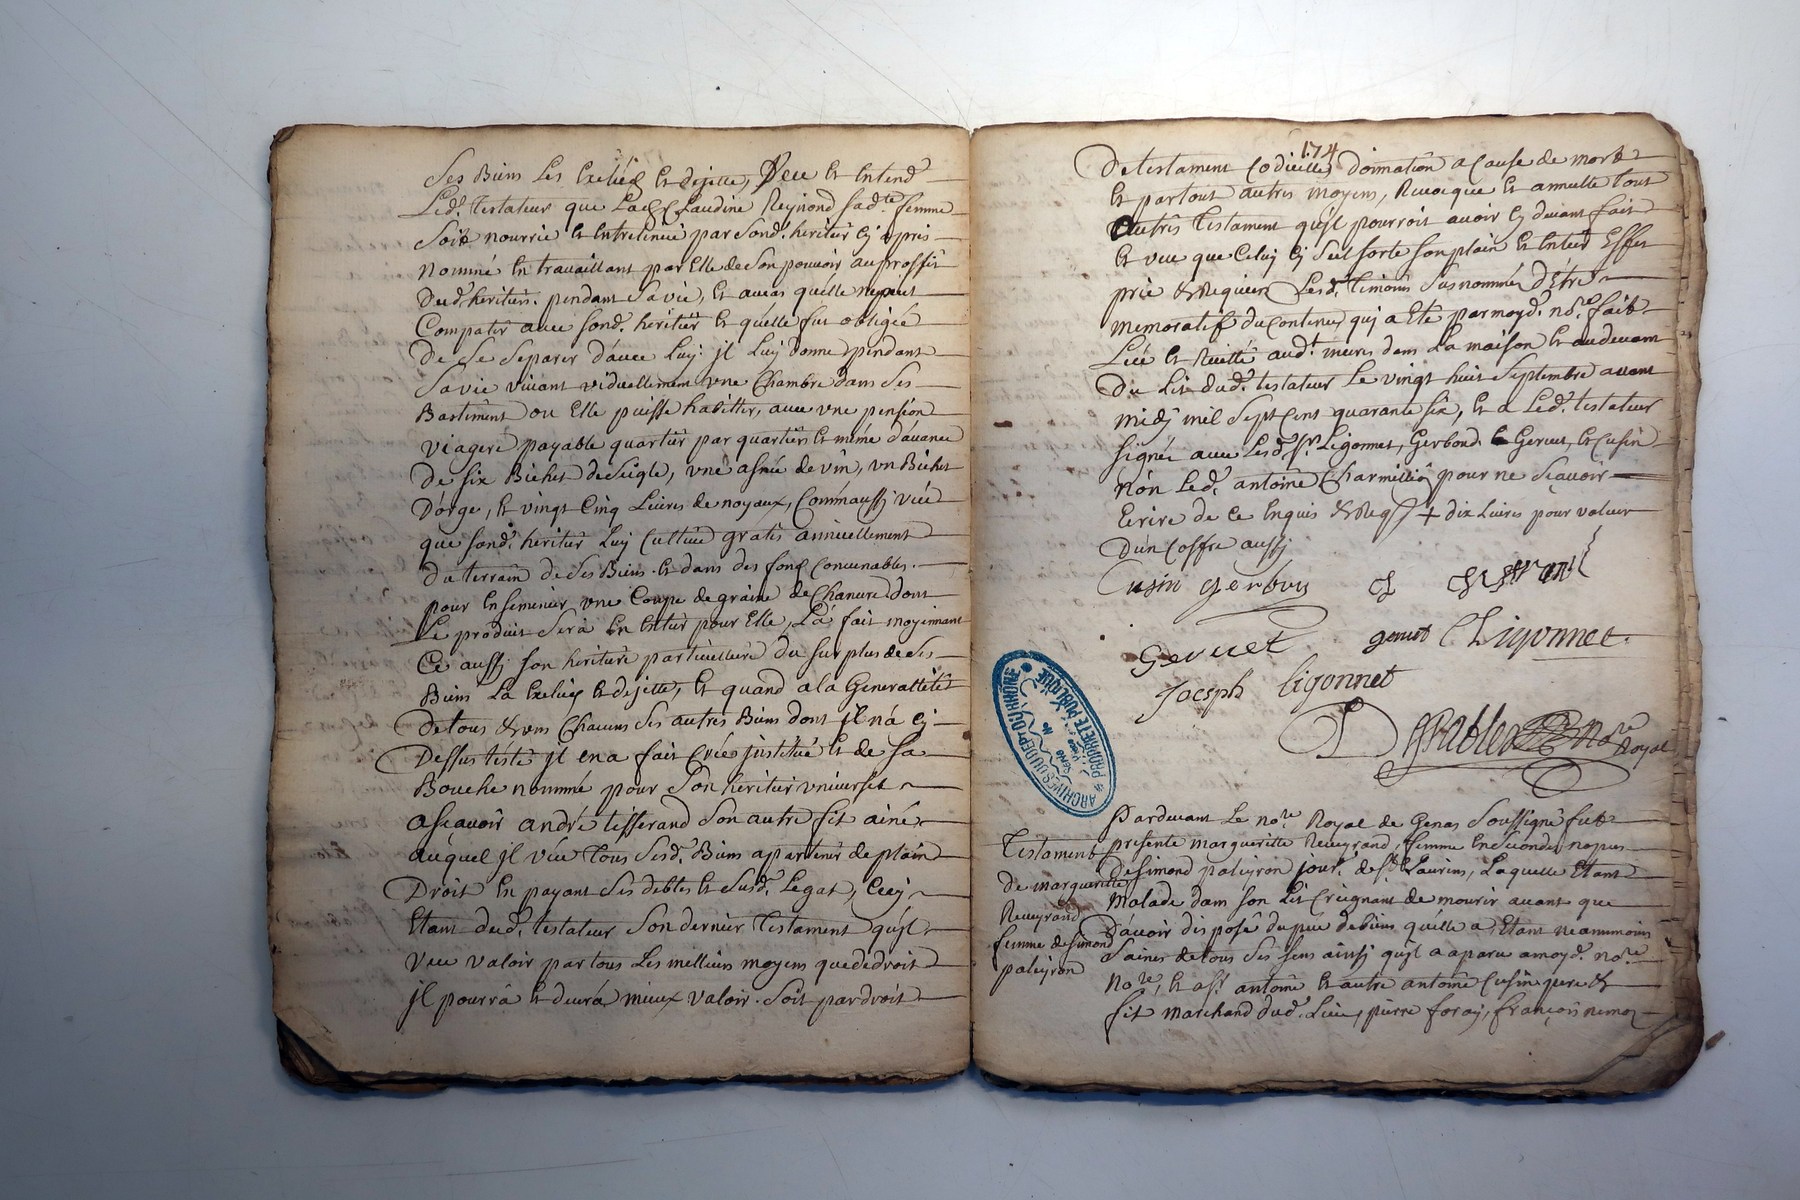 Ses Biens Les Exclud Et dejette, Veu Et Entend
Led.t testateur que Lad. Claudine Reynond sad.te femme
Soit nourrie Et Entretenüe par Sond. heritier Cy apres
Nommé En travaillant par Elle de Son pouvoir au proffit
Dud. heritier. pendant Sa vie, Et au cas quelle ne peut
Compatir avec Sond. heritier Et quelle fut obligée
De Se Separer d'avec Luy. jl Luy donne pendant
Sa vie vivant viduellement vne Chambre dans Ses
Bastiment ou Elle puisse habitter, avec vne pension
Viagere payable quartier par quartier Et même d'avance
De six Bichet de Seigle, vne asnée de vin, vn Bichet
D'orge, Et vingt Cinq Livres de noyaux, Comm'aussy
que Sond. heritier Luy Cultive gratis annuellement
Du terrain de Ses Biens Et dans des fond Convenables.
pour En Semencer vne Coupe de graine de Chanvre dont
Le produit Sera En Entier pour Elle, La fait moyennant
Ce aussy Son heritiere particulliere du Surplus de Ses
Biens La Exclud Et dejette, Et quand a la Generallité
De tous Et vns Chacuns Ses autres Biens dont jl n'a Cy
Dessus testé jl en a fait Créé jnstitué Et de Sa
Bouche nommé pour Son heritier vniversel
asçavoir andré tisserand Son autre fil ainé
auquel jl Tous Sesd. Biens apartenir de plain
Droit En payant Ses debtes Et Susd. Legat, Cecy
Etant dud. testateur Son dernier Testament qu'jl
Veu valoir par tous Les meilleurs moyens que de droit
jl pourra Et devra mieux valoir. Soit par droit
174
De testament Codicille, donnation a Cause de mort
Et par tout autres moyens, Revoque Et annulle tout
autres Testament qu'jl pourroit avoir Cy devant fait
Et veu que Celuy Cy Seul Sorte Son plain Et Entier Effet
prié & Requier Lesd. Timoins Susnommés d'Etre
memoratif du Contenu qui a Eté par moyd. no.re fait
Leu Et Recitté aud.t meures dans La maison Et au devant
Du Lit dud. testateur Le vingt huit Septembre avant
midy mil Sept Cent quarante Six, Et a Led. testateur
Signé avec Lesd. Srs. Ligonnet, Gerbond. Et Gervet, Et Cusin
Non Led. antoine Charmillio pour ne Sçavoir
Ecrire de Ce Enquis & Req + dix Livres pour valeur
D'un Coffre aussy
Cusin gerbon
Gervet gervet C Ligonnet
Joesph Ligonnet
no.re Royal
Pardevant Le no.re Royal de Genas Soussigné fut
Testament
de margueritte
Reveyrand
femme de Simond
paleyron
presente margueritte Reveyrand, femme En Secondes nopces
de Simond paleyron jour. de St. Laurins, Laquelle Etant
Malade dans Son Lit Creignant de mourir avant que
D'avoir disposé du peu de biens qu'elle a Etant neanmoins
Saines de tous Ses Sens ainsy qu'jl a aparu a moyd. no.re
No.re, Et antoine Et autre antoine Cusin pere &
fil marchand dud. Lieu, pierre foray, françois
ARCHIVES DU DEPT DU RHONE
PROPRIETE PUBLIQUE